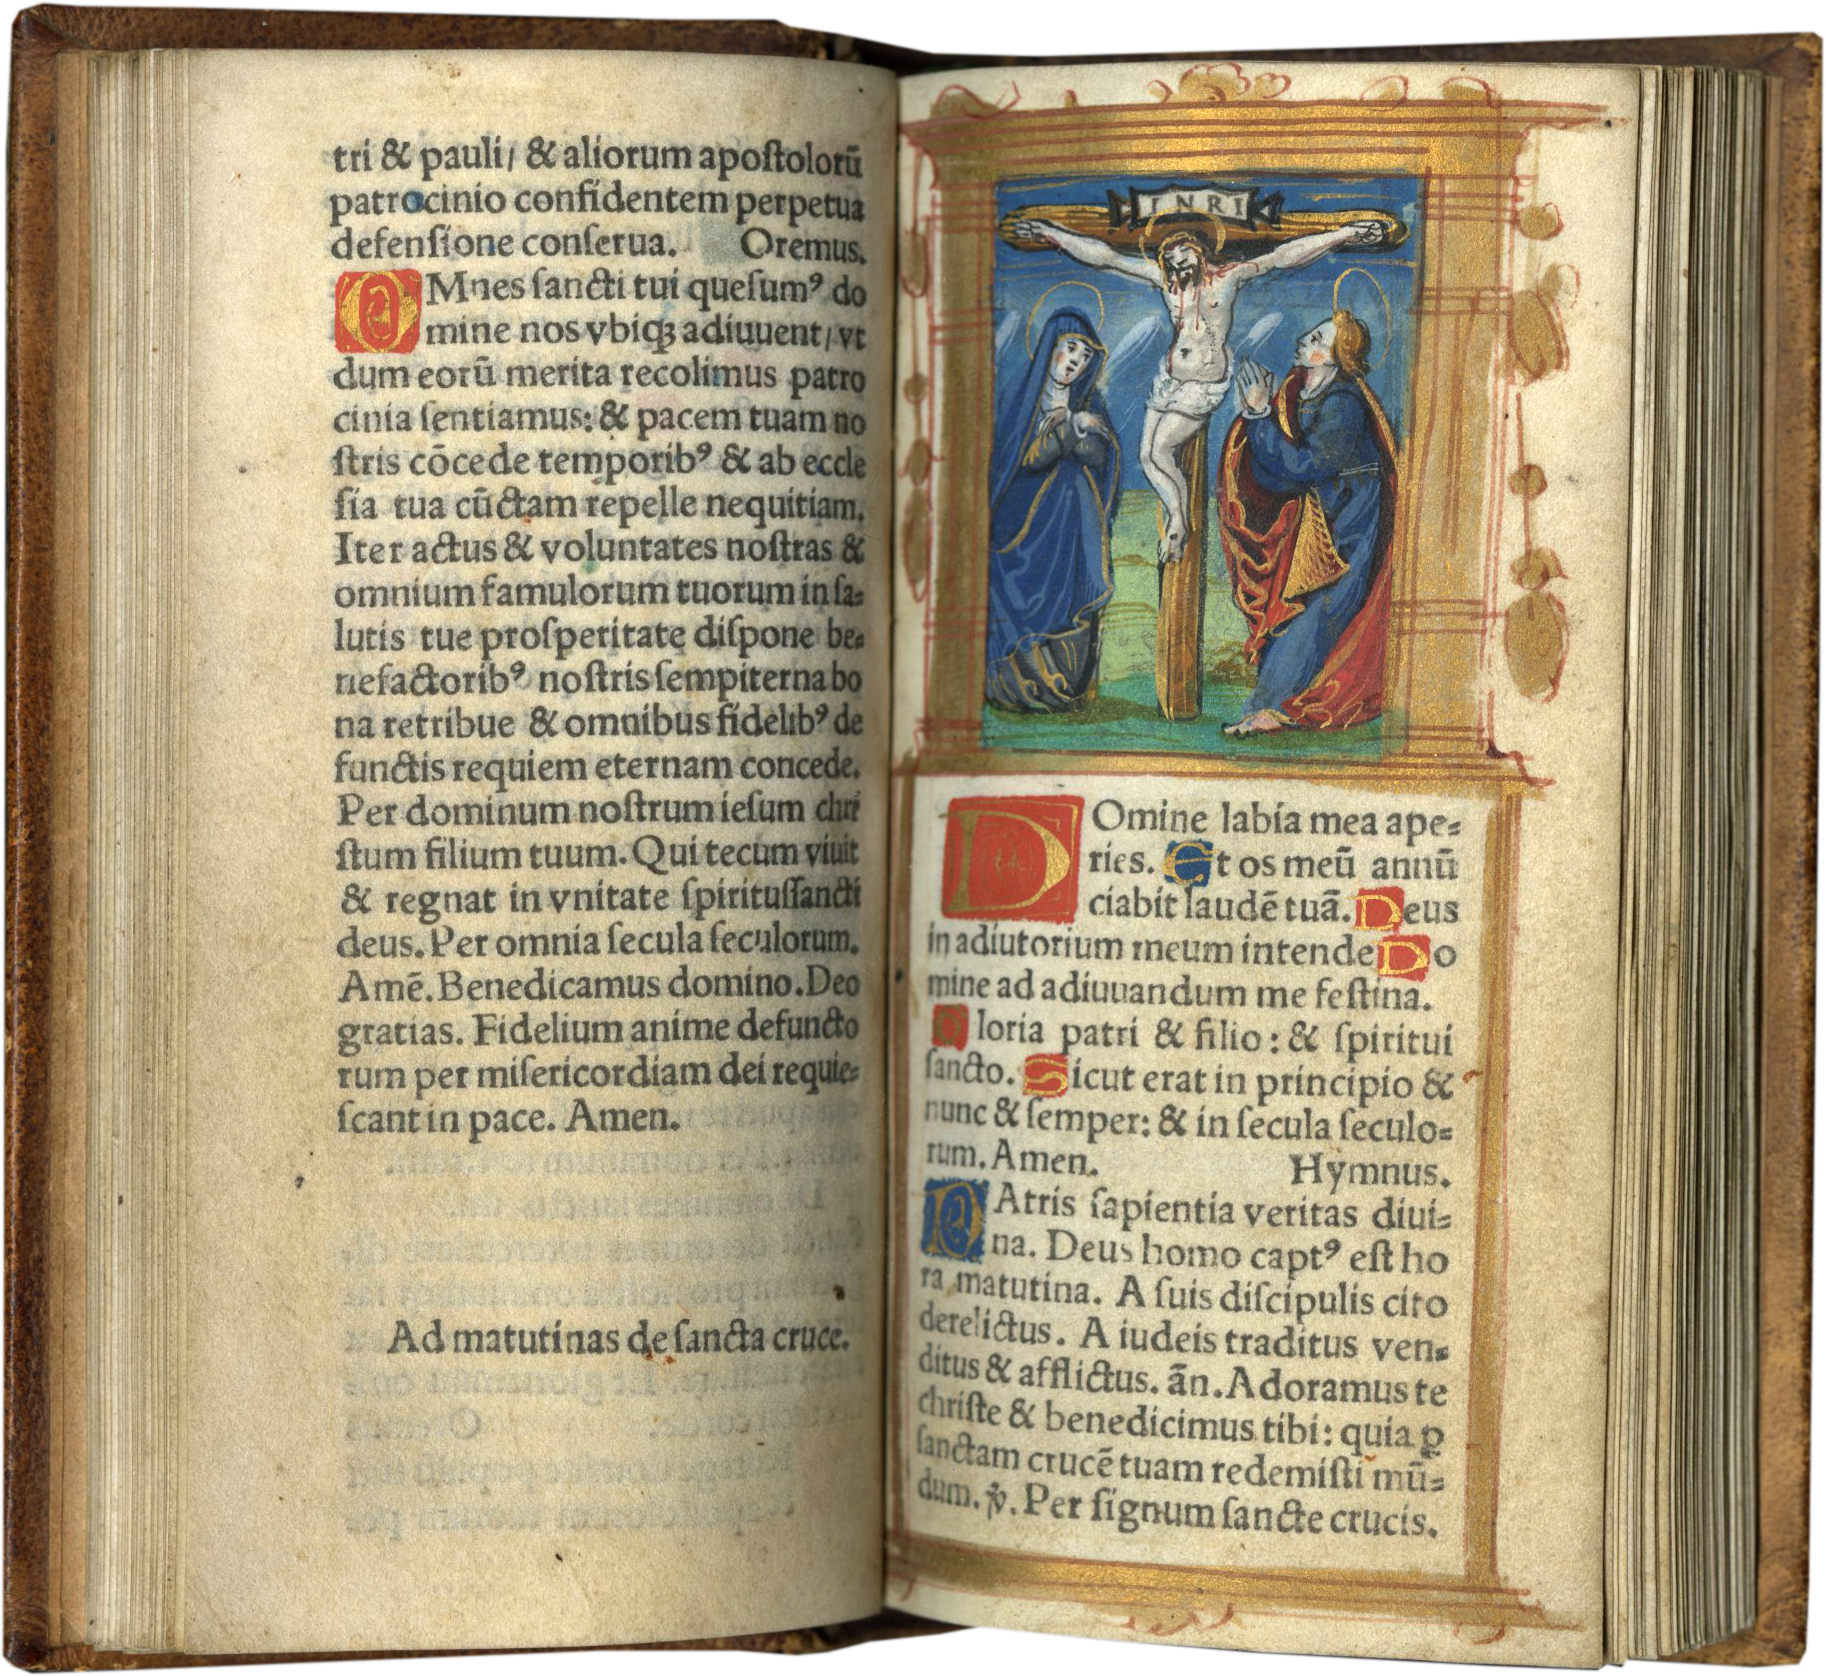 tri & pauli/ & aliorum apoſtolorū
patrocinio confidentem perpetua
defenſione conſerua. Oremus.
OMnes ſancti tui queſumꝰ do
mine nos vbiqꝫ adiuuent/ vt
dum eorū merita recolimus patro
cinia ſentiamus: & pacem tuam no
ſtris cōcede temporibꝰ & ab eccle
ſia tua cūctam repelle nequitiam.
Iter actus & voluntates noſtras &
omnium famulorum tuorum in ſa⸗
lutis tue proſperitate diſpone be⸗
nefactoribꝰ noſtris ſempiterna bo
na retribue & omnibus fidelibꝰ de
functis requiem eternam concede.
Per dominum noſtrum ieſum chri
ſtum filium tuum. Qui tecum viuit
& regnat in vnitate ſpirituſſancti
deus. Per omnia ſecula ſeculorum.
Amē. Benedicamus domino. Deo
gratias. Fidelium anime defuncto
rum per miſericordiam dei requie⸗
ſcant in pace. Amen.
Ad matutinas de ſancta cruce.
INRI
DOmine labia mea ape⸗
ries. Et os meū annū
ciabit laudē tuā. Deus
in adiutorium meum intende Do
mine ad adiuuandum me feſtina.
Gloria patri & filio: & ſpiritui
ſancto. Sicut erat in principio &
nunc & ſemper: & in ſecula ſeculo⸗
rum. Amen. Hymnus.
PAtris ſapientia veritas diui⸗
na. Deus homo captꝰ eſt ho
ra matutina. A ſuis diſcipulis cito
derelictus. A iudeis traditus ven⸗
ditus & afflictus. ān. Adoramus te
chriſte & benedicimus tibi: quia ꝑ
ſanctam crucē tuam redemiſti mū⸗
dum. ℣. Per ſignum ſancte crucis.